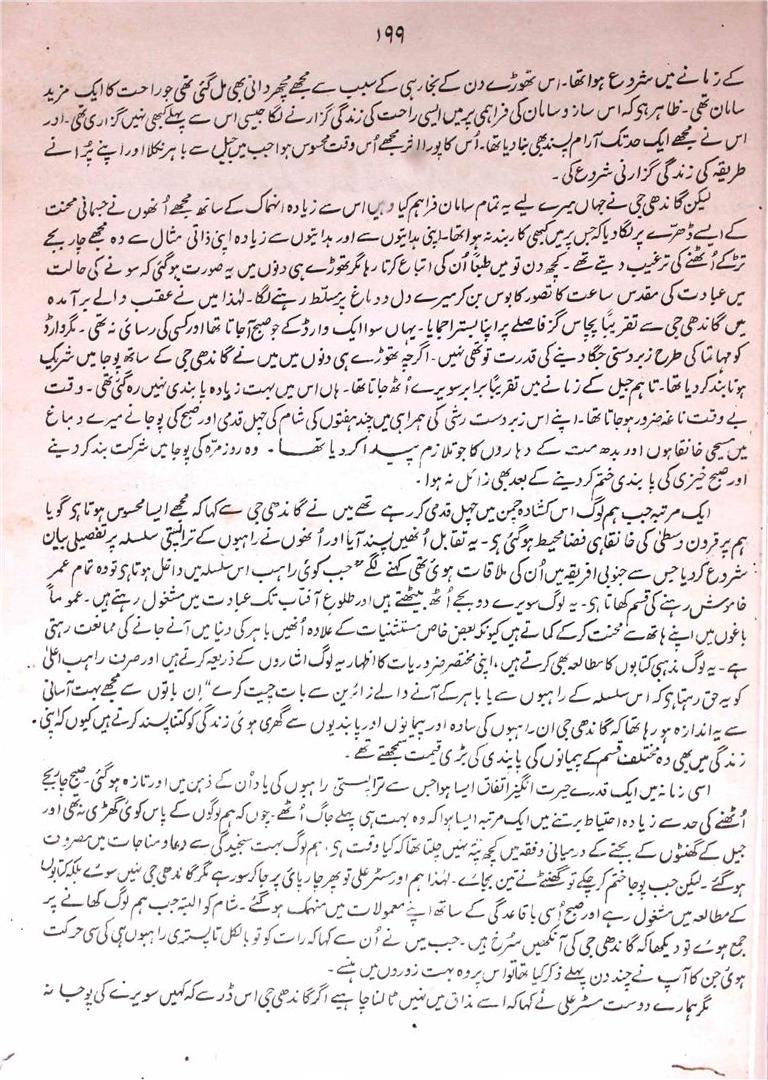 ۱۹۹
کے زمانے میں شروع ہوا تھا۔ اس تھوڑے دن کے بخار ہی کے سبب سے مجھے مچھر دانی بھی مل گئی تھی جو راحت کا ایک مزید
سامان تھی۔ ظاہر ہو کہ اس ساز و سامان کی فراہمی پر میں ایسی راحت کی زندگی گزارنے لگا جیسی اس سے پہلے کبھی نہیں گزاری تھی۔ اور
اس نے مجھے ایک حد تک آرام پسند بھی بنا دیا تھا۔ اُس کا پورا اثر مجھے اُس وقت محسوس ہوا جب میں جیل سے باہر نکلا اور اپنے پُرانے
طریقہ کی زندگی گزارنی شروع کی۔
لیکن گاندھی جی نے جہاں میرے لیے یہ تمام سامان فراہم کیا وہیں اس سے زیادہ انہماک کے ساتھ مجھے اُنھوں نے جسمانی محنت
کے ایسے ڈھرّے پر لگا دیا کہ جس پر میں کبھی کا ربند نہ ہوا تھا۔ اپنی ہدایتوں سے اور ہدایتوں سے زیادہ اپنی ذاتی مثال سے وہ مجھے چار بجے
تڑکے اُٹھنے کی ترغیب دیتے تھے۔ کچھ دن تو میں طبعاً اُن کی اتباع کرتا رہا مگر تھوڑے ہی دنوں میں یہ صورت ہو گئی کہ سونے کی حالت
میں عبادت کی مقدس ساعت کا تصور کابوس بن کر میرے دل و دماغ پر مسلط رہنے لگا۔ لہٰذا میں نے عقب والے برآمدہ
میں گاندھی جی سے تقریباً پچاس گز فاصلے پر اپنا بستر اجمایا۔ یہاں سوا ایک وارڈ کے جو صبح آجاتا تھا اور کسی کی رسائی نہ تھی۔ مگر وارڈ
کو مہاتما کی طرح زبردستی جگا دینے کی قدرت تو تھی نہیں۔ اگرچہ تھوڑے ہی دنوں میں میں نے گاندھی جی کے ساتھ پوجا میں شریک
ہونا بند کر دیا تھا۔ تاہم جیل کے زمانے میں تقریباً برابر سویرے اُٹھ جاتا تھا۔ ہاں اس میں بہت زیادہ پابندی نہیں رہ گئی تھی۔ وقت
بے وقت ناغہ ضرور ہو جاتا تھا۔ اپنے اس زبردست رشی کی ہمراہی میں چند ہفتوں کی شام کی چہل قدمی اور صبح کی پوجا نے میرے دماغ
میں مسیحی خانقاہوں اور بدھ مت کے دہاروں کا جو تلازم پیدا کر دیا تھا۔ وہ روزمرّہ کی پوجا میں شرکت بند کر دینے
اور صبح خیزی کی پابندی ختم کر دینے کے بعد بھی زائل نہ ہوا۔
ایک مرتبہ جب ہم لوگ اس کشادہ چمن میں چہل قدمی کر رہے تھے میں نے گاندھی جی سے کہا کہ مجھے ایسا محسوس ہوتا ہو گویا
ہم پر قرون وسطیٰ کی خانقاہی فضا محیط ہو گئی ہو۔ یہ تقابل اُنھیں پسند آیا اور اُنھوں نے راہبوں کے ترالپستی سلسلہ پر تفصیلی بیان
شروع کر دیا جس سے جنوبی افریقہ میں اُن کی ملاقات ہوئی تھی کہنے لگے "جب کوئی راہب اس سلسلہ میں داخل ہوتا ہو تو وہ تمام عمر
خاموش رہنے کی قسم کھاتا ہو۔ یہ لوگ سویرے دو بجے اُٹھ بیٹھتے ہیں اور طلوع آفتاب تک عبادت میں مشغول رہتے ہیں۔ عموماً
باغوں میں اپنے ہاتھ سے محنت کر کے کماتے ہیں کیونکہ بعض خاص مستثنیات کے علاوہ اُنھیں باہر کی دنیا میں آنے جانے کی ممانعت رہتی
ہے۔ یہ لوگ مذہبی کتابوں کا مطالعہ بھی کرتے ہیں، اپنی مختصر ضروریات کا اظہار یہ لوگ اشاروں کے ذریعہ کرتے ہیں اور صرف راہب اعلیٰ
کو یہ حق رہتا ہو کہ اس سلسلہ کے راہبوں سے یا باہر کے آنے والے زائرین سے بات چیت کرے" اِن باتوں سے مجھے بہت آسانی
سے یہ اندازہ ہو رہا تھا کہ گاندھی جی ان راہبوں کی سادہ اور پیمانوں اور پابندیوں سے گھری ہوئی زندگی کو کتنا پسند کرتے ہیں کیوں کہ اپنی
زندگی میں بھی وہ مختلف قسم کے پیمانوں کی پابندی کی بڑی قیمت سمجھتے تھے۔
اسی زمانہ میں ایک قدرے حیرت انگیز اتفاق ایسا ہوا جس سے تراپستی راہبوں کی یاد اُن کے ذہن میں اور تازہ ہو گئی۔ صبح چار بجے
اُٹھنے کی حد سے زیادہ احتیاط برتنے میں ایک مرتبہ ایسا ہوا کہ وہ بہت ہی پہلے جاگ اُٹھے۔ چوں کہ ہم لوگوں کے پاس کوئی گھڑی نہ تھی اور
جیل کے گھنٹوں کے بجنے کے درمیانی وقفہ میں کچھ پتہ نہیں چلتا تھا کہ کیا وقت ہو، ہم لوگ بہت سنجیدگی سے دعا و مناجات میں مصروف
ہو گئے۔ لیکن جب پوجا ختم کر چکے تو گھنٹے نے تین بجائے۔ لہٰذا ہم اور مسٹر علی تو پھر چارپائی پر جا کر سو رہے مگر گاندھی جی نہیں سوئے بلکہ کتابوں
کے مطالعہ میں مشغول رہے اور صبح اُسی باقاعدگی کے ساتھ اپنے معمولات میں منہمک ہو گئے۔ شام کو البتہ جب ہم لوگ کھانے پر
جمع ہوئے تو دیکھا کہ گاندھی جی کی آنکھیں سُرخ ہیں۔ جب میں نے اُن سے کہا کہ رات کو تو بالکل تاپستری راہبوں ہی کی سی حرکت
ہوئی جن کا آپ نے چند دن پہلے ذکر کیا تھا تو اس پر وہ بہت زوروں میں ہنسے۔
مگر ہمارے دوست مسٹر علی نے کہا کہ اسے مذاق میں نہیں ٹالنا چاہیے اگر گاندھی جی اس ڈر سے کہ کہیں سویرے کی پوجا نہ